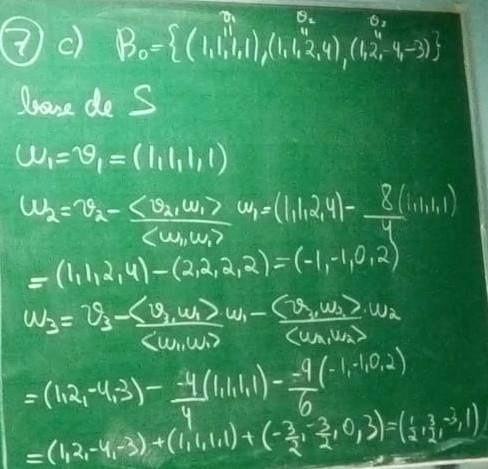 7 c) B₀={(1,1,1,1),(1,1,2,4),(1,2,-4,-3)}
v₁ v₂ v₃
base de S
w₁=v₁=(1,1,1,1)
w₂=v₂-<v₂,w₁>/<w₁,w₁> w₁=(1,1,2,4)-8/4(1,1,1,1)
=(1,1,2,4)-(2,2,2,2)=(-1,-1,0,2)
w₃=v₃-<v₃,w₁>/<w₁,w₁> w₁-<v₃,w₂>/<w₂,w₂>·w₂
=(1,2,-4,-3)- -4/4(1,1,1,1)- -9/6(-1,-1,0,2)
=(1,2,-4,-3)+(1,1,1,1)+(-3/2,-3/2,0,3)=(1/2,3/2,-3,1)